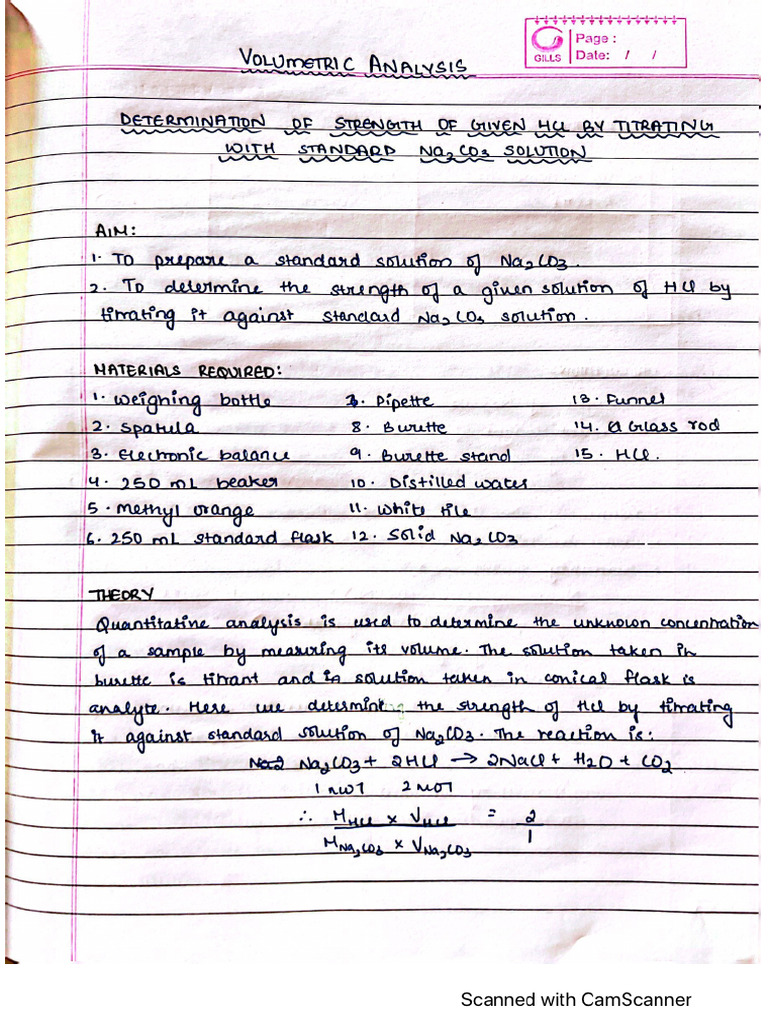 Page :
GILLS Date: / /
VOLUMETRIC ANALYSIS
DETERMINATION OF STRENGTH OF GIVEN HCl BY TITRATING
WITH STANDARD Na2CO3 SOLUTION
AIM:
1. To prepare a standard solution of Na2CO3.
2. To determine the strength of a given solution of HCl by
titrating it against standard Na2CO3 solution.
MATERIALS REQUIRED:
1. Weighing bottle 7. Pipette 13. Funnel
2. Spatula 8. Burette 14. Glass rod
3. Electronic balance 9. Burette stand 15. HCl.
4. 250 mL beaker 10. Distilled water
5. Methyl orange 11. White tile
6. 250 mL standard flask 12. Solid Na2CO3
THEORY
Quantitative analysis is used to determine the unknown concentration
of a sample by measuring its volume. The solution taken in
burette is titrant and solution taken in conical flask is
analyte. Here we determine the strength of HCl by titrating
it against standard solution of Na2CO3. The reaction is:
Na2CO3 + 2HCl → 2NaCl + H2O + CO2
1 mol 2 mol
∴ MHCl x VHCl = 2
MNa2CO3 x VNa2CO3 1
Scanned with CamScanner